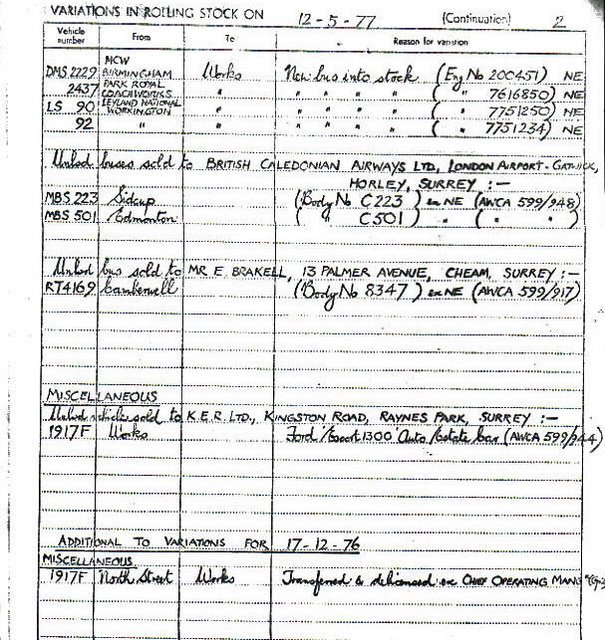 VARIATIONS IN ROLLING STOCK ON 12-5-77 (Continuation) 2
Vehicle number From To Reason for variation
MCW
DMS 2229 BIRMINGHAM Works New bus into stock (Eng No 200451) NE
PARK ROYAL
2437 COACHWORKS " " " " " ( " 7616850) NE
LEYLAND NATIONAL
LS 90 WORKINGTON " " " " " ( " 7751250) NE
92 " " " " " " ( " 7751234) NE
Unlicd buses sold to BRITISH CALEDONIAN AIRWAYS LTD, LONDON AIRPORT - GATWICK,
HORLEY, SURREY :-
MBS 223 Sidcup (Body No C223) ex NE (AWCA 599/948)
MBS 501 Edmonton ( " C501) " ( " " )
Unlicd bus sold to MR E. BRAKELL, 13 PALMER AVENUE, CHEAM, SURREY :-
RT4169 Camberwell (Body No 8347) ex NE (AWCA 599/917)
MISCELLANEOUS
Unlicd vehicle sold to K.E.R. LTD., KINGSTON ROAD, RAYNES PARK, SURREY :-
1917F Works Ford 'Escort 1300' Auto/Estate Car (AWCA 599/944)
ADDITIONAL TO VARIATIONS FOR 17-12-76
MISCELLANEOUS
1917F North Street Works Transferred & delicensed ex CHIEF OPERATING MANG